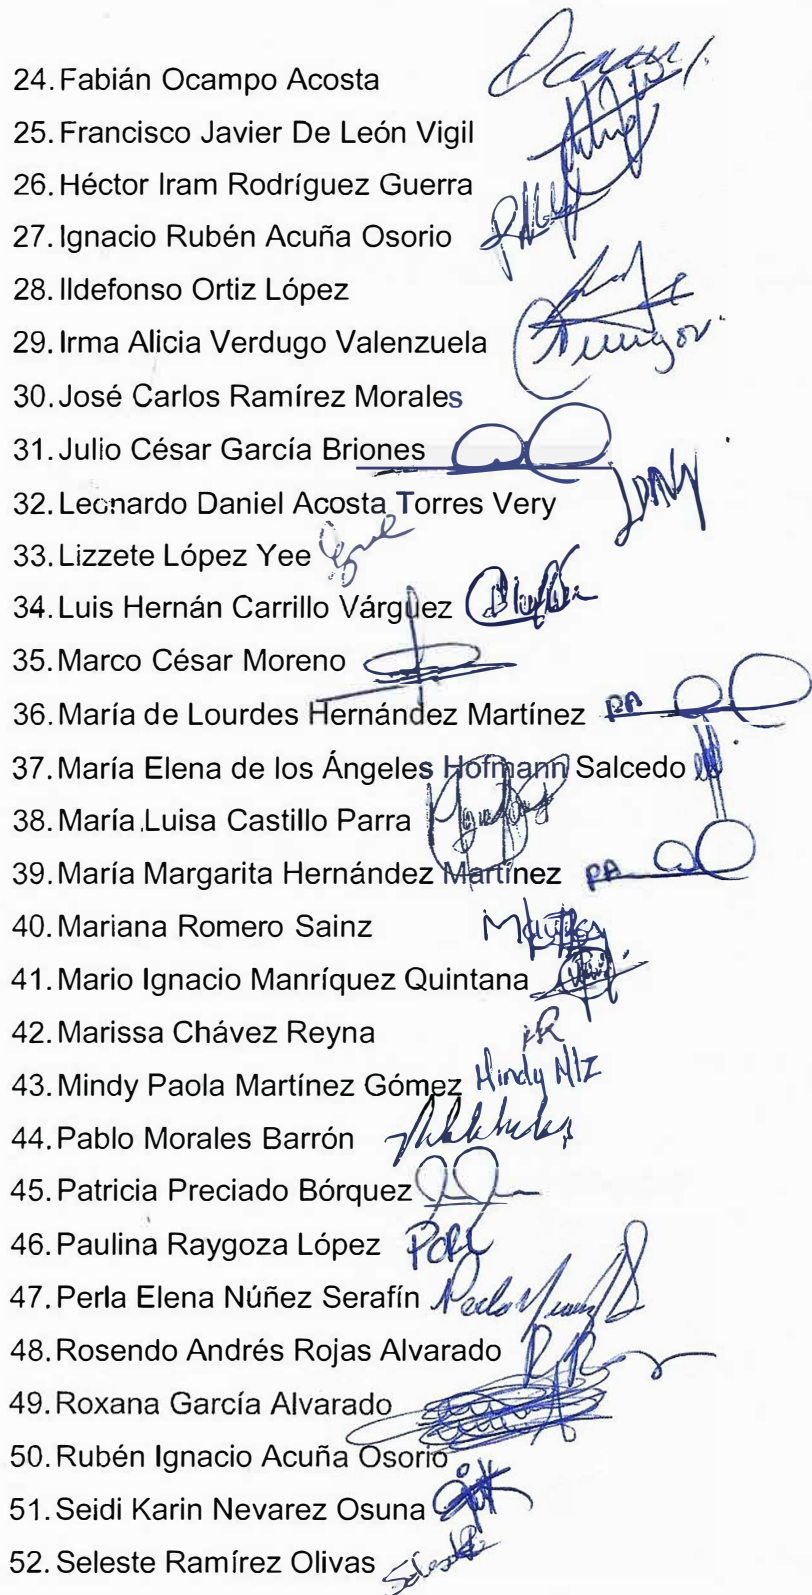 24. Fabián Ocampo Acosta
25. Francisco Javier De León Vigil
26. Héctor Iram Rodríguez Guerra
27. Ignacio Rubén Acuña Osorio
28. Ildefonso Ortiz López
29. Irma Alicia Verdugo Valenzuela
30. José Carlos Ramírez Morales
31. Julio César García Briones
32. Leonardo Daniel Acosta Torres Very
33. Lizzete López Yee
34. Luis Hernán Carrillo Várguez
35. Marco César Moreno
36. María de Lourdes Hernández Martínez PA
37. María Elena de los Ángeles Hofmann Salcedo
38. María Luisa Castillo Parra
39. María Margarita Hernández Martínez PA
40. Mariana Romero Sainz
41. Mario Ignacio Manríquez Quintana
42. Marissa Chávez Reyna
43. Mindy Paola Martínez Gómez Mindy Mtz
44. Pablo Morales Barrón
45. Patricia Preciado Bórquez
46. Paulina Raygoza López
47. Perla Elena Núñez Serafín
48. Rosendo Andrés Rojas Alvarado
49. Roxana García Alvarado
50. Rubén Ignacio Acuña Osorio
51. Seidi Karin Nevarez Osuna
52. Seleste Ramírez Olivas